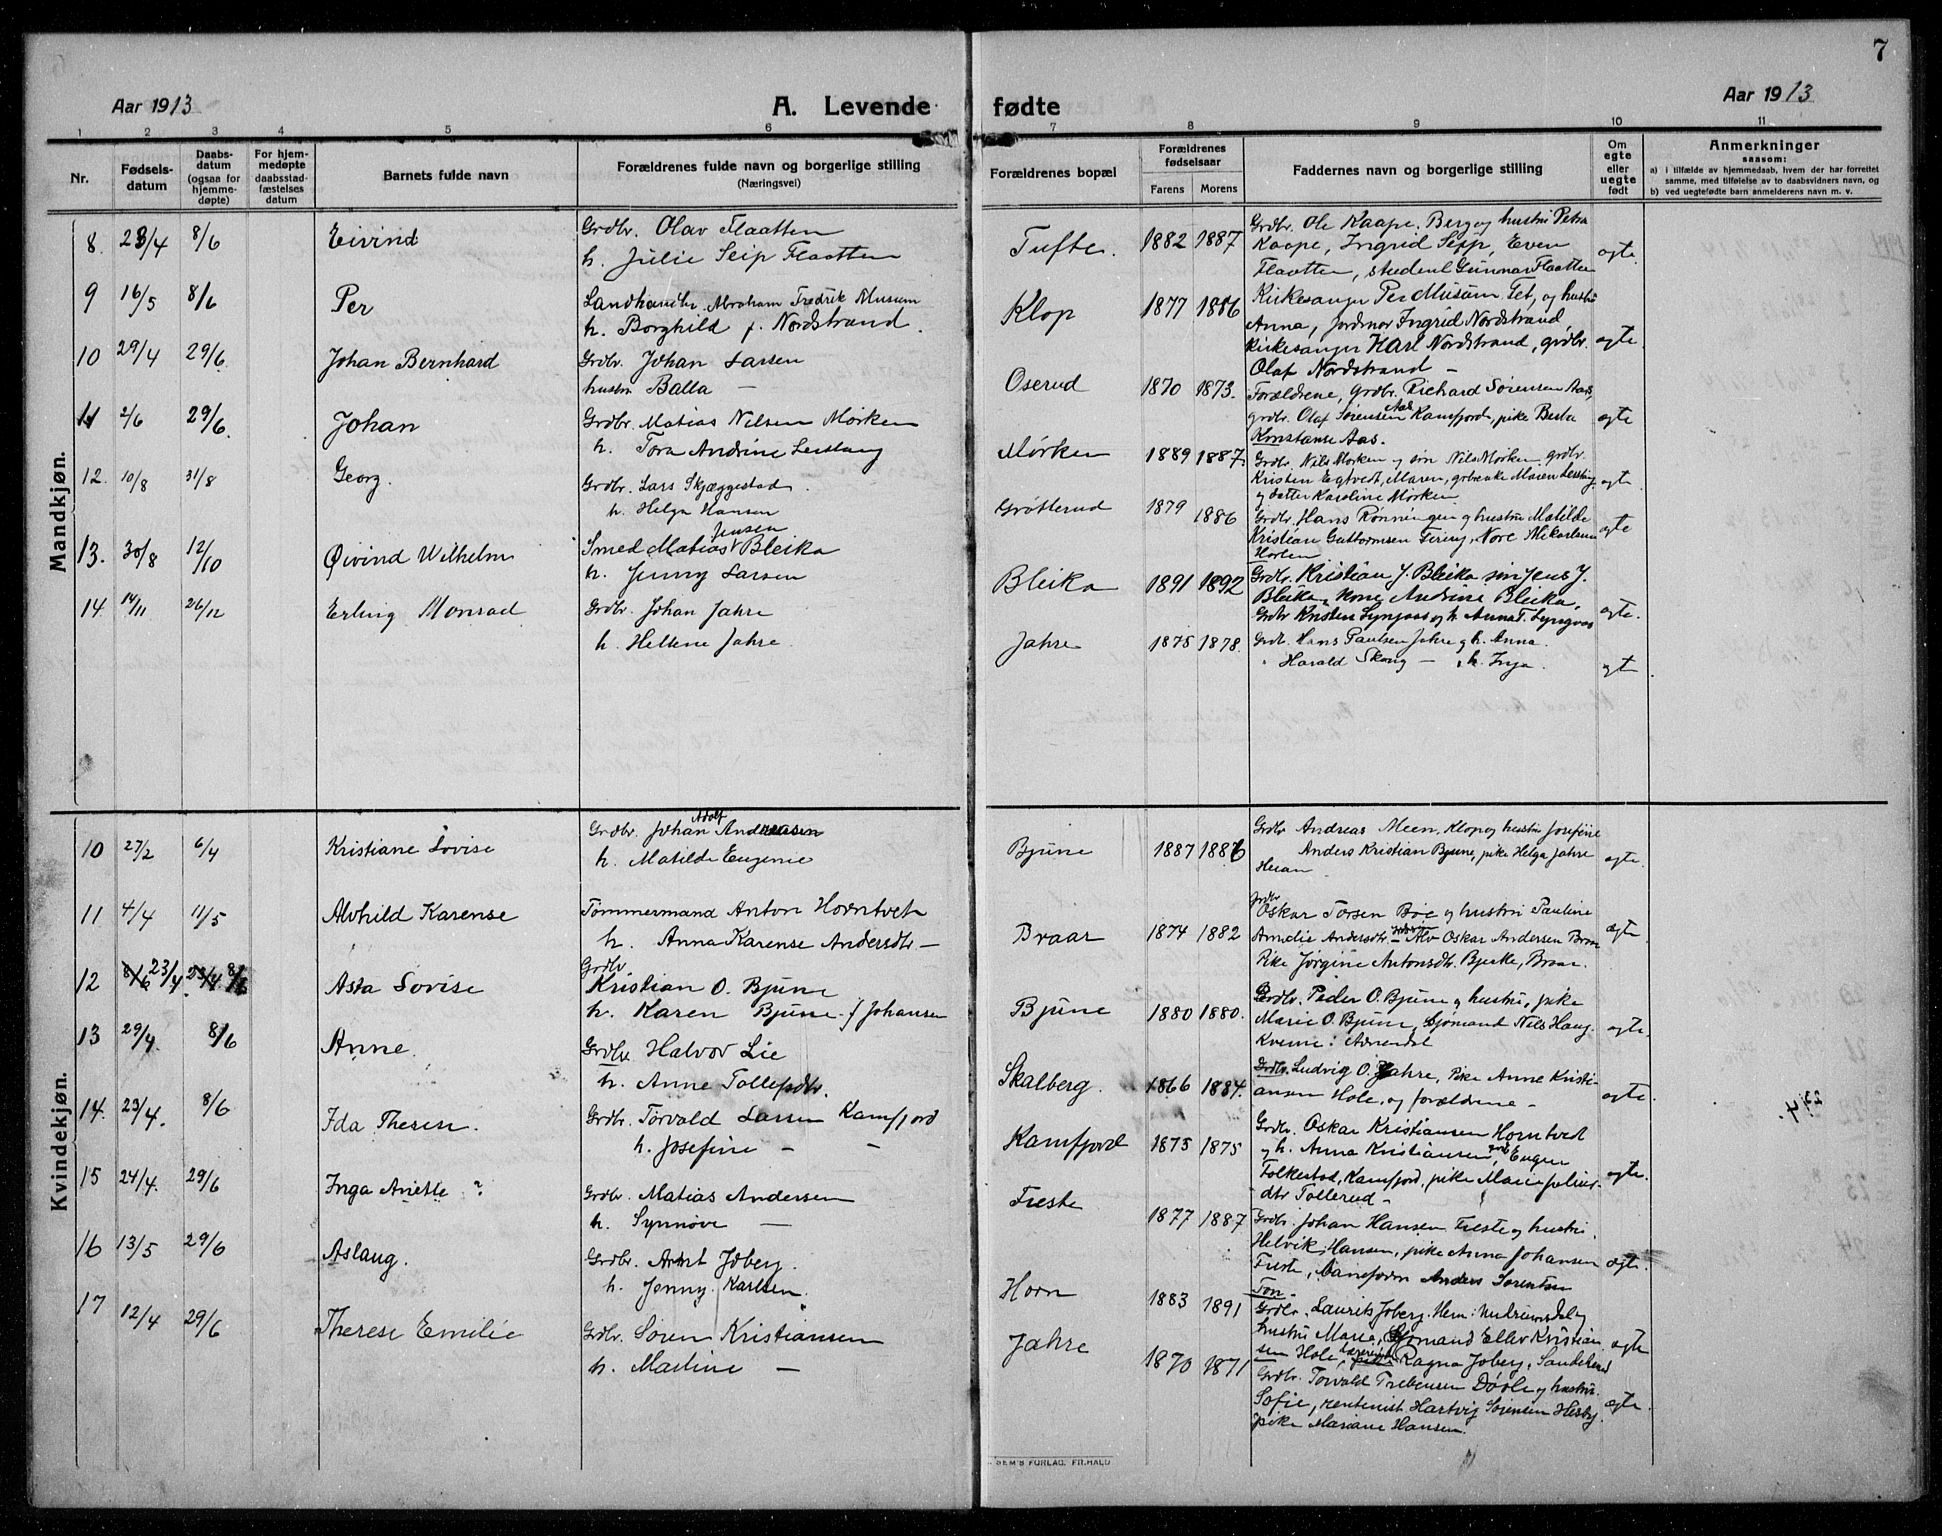 7
Aar 1913
A. Levende fødte
Aar 1913
1 2 3 4 5 6 7 8 9 10 11
Nr.
Fødsels-
datum
Daabs-
datum
(ogsaa for
hjemme-
døpte)
For hjem-
medøpte
daabsstad-
fæstelses
datum
Barnets fulde navn
Forældrenes fulde navn og borgerlige stilling
(Næringsvei)
Forældrenes bopæl
Forældrenes
fødselsaar
Farens Morens
Faddernes navn og borgerlig stilling
Om
egte
eller
uegte
født
Anmerkninger
saasom:
a) i tilfælde av hjemmedaab, hvem der har forrettet
samme, med tilføielse av to daabsvidners navn, og
b) ved uegtefødte barn anmelderens navn m. v.
Mandkjøn.
8. 23/4 8/6 Eivind
Grdbr. Olav Flaatten
h. Julie Seip Flaatten
Tufte. 1882 1887
Grdbr. Ole Kaape, Berg og hustru Petra
Kaape, Ingrid Seip, Even
Flaatten, student Gunnar Flaatten
egte
9 16/5 8/6 Per
Landhandler Abraham Fredrik Musum
h. Borghild f. Nordstrand.
Klop 1877 1886
Kirkesanger Per Musum Tet, og hustru
Anna, Jordmor Ingrid Nordstrand,
kirkesanger Karl Nordstrand, grdbr.
Olaf Nordstrand —
egte
10 29/4 29/6 Johan Bernhard
Grdbr. Johan Larsen
hustru Balla —
Oserud 1870 1873.
Forældrene, Grdbr. Richard Sørensen Aas,
grdbr. Olaf Sørensen Aas Kamfjord, pike Berta
Konstanse Aas.
egte
11 2/6 29/6 Johan
Grdbr. Matias Nilsen Mørken
h. Tora Andrine Leistang
Mørken 1889 1887.
Grdbr. Nils Mørken og søn Nils Mørken, grdbr.
Kristen Egtvedt, Maren, grbenke Maren Leistang
og datter Karoline Mørken
egte
12. 10/8 31/8 Georg.
Grdbr. Lars Skjæggestad
h. Helga Hansen
Grøtterud 1879 1886
Grdbr. Hans Rønningen og hustru Matilde
Kristian Guttormsen Nore
egte
13. 30/8 12/10 Øivind Wilhelm
Smed Matias Jensen Bleika
h. Jenny Larsen
Bleika 1891 1892
Grdbr. Kristian J. Bleika søn Jens J.
Bleika, kone Andrine Bleika,
Grdbr. Kristen Lyngaas og h. Anna T. Lyngaas
egte.
14. 14/11 26/12 Erling Monrad
Grdbr. Johan Jahre
h. Hellene Jahre
Jahre 1875 1878.
Grdb. Hans Paulsen Jahre og h. Anna
" Harald Skaug — " h. Inga.
egte
Kvindekjøn.
10 27/2 6/4 Kristiane Lovise
Grdbr. Johan Adolf Andreassen
h. Matilde Eugenie
Bjune 1887 1886
Grdbr Andreas Meen, Klop og hustru Josefine
Anders Kristian Bjune, pike Helga Jahre
egte.
11 4/4 11/5 Alvhild Karense
Tømmermand Anton Horntvet
h. Anna Karense Andersdtr —
Braar 1874 1882
Grdbr
Oskar Torsen Bøe og hustru Pauline
Amelie Andersdtr. — Alv Oskar Andersen Braar
Pike Jørgine Antonsdtr. Bjerke, Braar.
egte
12 8/6 23/4 23/4 8/6 Asta Lovise
Grdbr
Kristian O. Bjune
h. Karen Bjune f. Johansen
Bjune 1880 1880.
Grdbr. Peder O. Bjune og hustru, pike
Marie O. Bjune, Sjømand Nils Haug-
Kvenne i Arendal
egte
13 29/4. 8/6 Anne.
Grdbr Halvor Lie
h. Anne Tollefsdtr.
Skalberg. 1866 1884.
Grdbr. Ludvig O. Jahre, Pike Anne Kristi-
ansen Hole, og forældrene —
egte
14. 23/4. 8/6 Ida Therese.
Grdbr. Torvald Larsen Kamfjord
h. Josefine — —
Kamfjord 1873 1875
Grdbr. Oskar Kristiansen Horntvedt
og h. Anna Kristiansen, Eugen
Folkestad, Kamfjord, pike Marie Julius-
dtr Tollerud —
egte.
29/4
15 24/4. 29/6 Inga Anette ?
Grdbr. Matias Andersen
h. Synnøve —
Freste 1877 1887
Grdbr. Johan Hansen Freste og hustru
Helvik Hansen, pike Anna Johansen
Freste, Anders Sørensen
Ton.
egte.
16 13/5 29/6 Aslaug.
Grdbr. Arnt Joberg.
h. Jenny Karlsen
Horn 1883 1891
Grdbr. Laurits Joberg, Hem
hustru Marie, Sjømand Ellev Kristian-
sen Hole, Ragna Joberg, Sandeherred
egte
17 12/4 29/6 Therese Emilie
Grdbr. Søren Kristiansen
h. Martine —
Jahre 1870 1871
Grdbr. Torvald Trebensen Døvle og hustru
Sofie, rentenist Hartvig Sørensen Hesby,
pike Mariane Hansen.
egte.
SEM'S FORLAG, FR.HALD